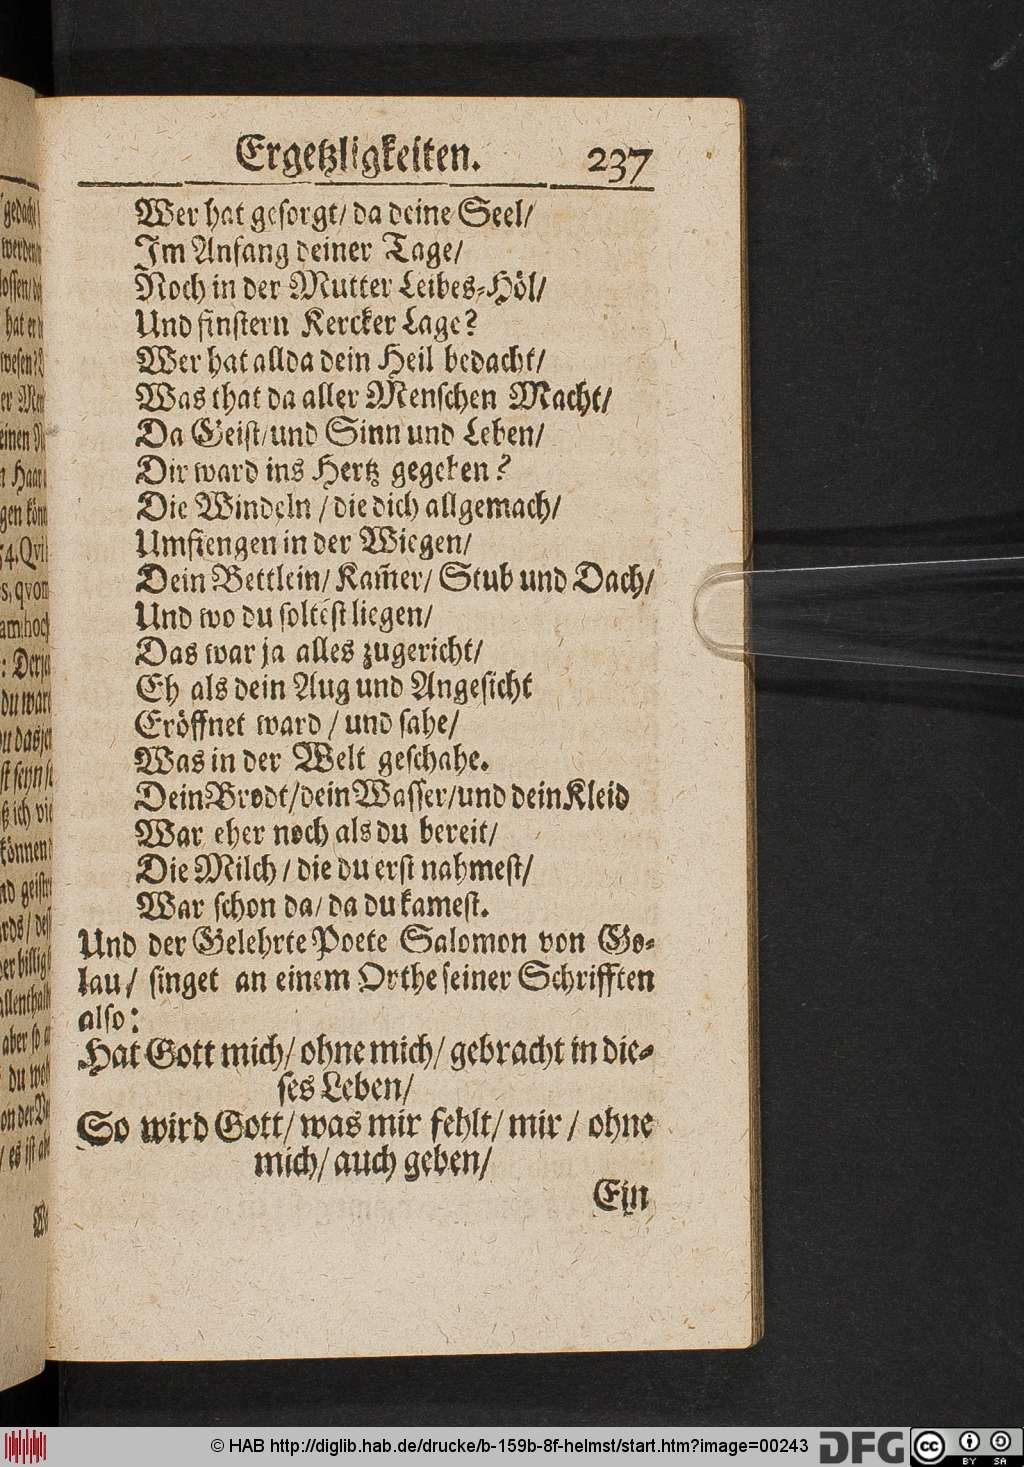 Ergetzligkeiten. 237
Wer hat gesorgt/ da deine Seel/
Im Anfang deiner Tage/
Noch in der Mutter Leibes-Höl/
Und finstern Kercker Lage?
Wer hat allda dein Heil bedacht/
Was that da aller Menschen Macht/
Da Geist/ und Sinn und Leben/
Dir ward ins Hertz gegeben?
Die Windeln / die dich allgemach/
Umfiengen in der Wiegen/
Dein Bettlein/ Kam̄er/ Stub und Dach/
Und wo du soltest liegen/
Das war ja alles zugericht/
Eh als dein Aug und Angesicht
Eröffnet ward / und sahe/
Was in der Welt geschahe.
Dein Brodt/ dein Wasser/ und dein Kleid
War eher noch als du bereit/
Die Milch / die du erst nahmest/
War schon da/ da du kamest.
Und der Gelehrte Poete Salomon von Go-
lau/ singet an einem Orthe seiner Schrifften
also:
Hat Gott mich/ ohne mich/ gebracht in die-
ses Leben/
So wird Gott/ was mir fehlt/ mir / ohne
mich/ auch geben/
Ein
© HAB http://diglib.hab.de/drucke/b-159b-8f-helmst/start.htm?image=00243
DFG
cc BY SA